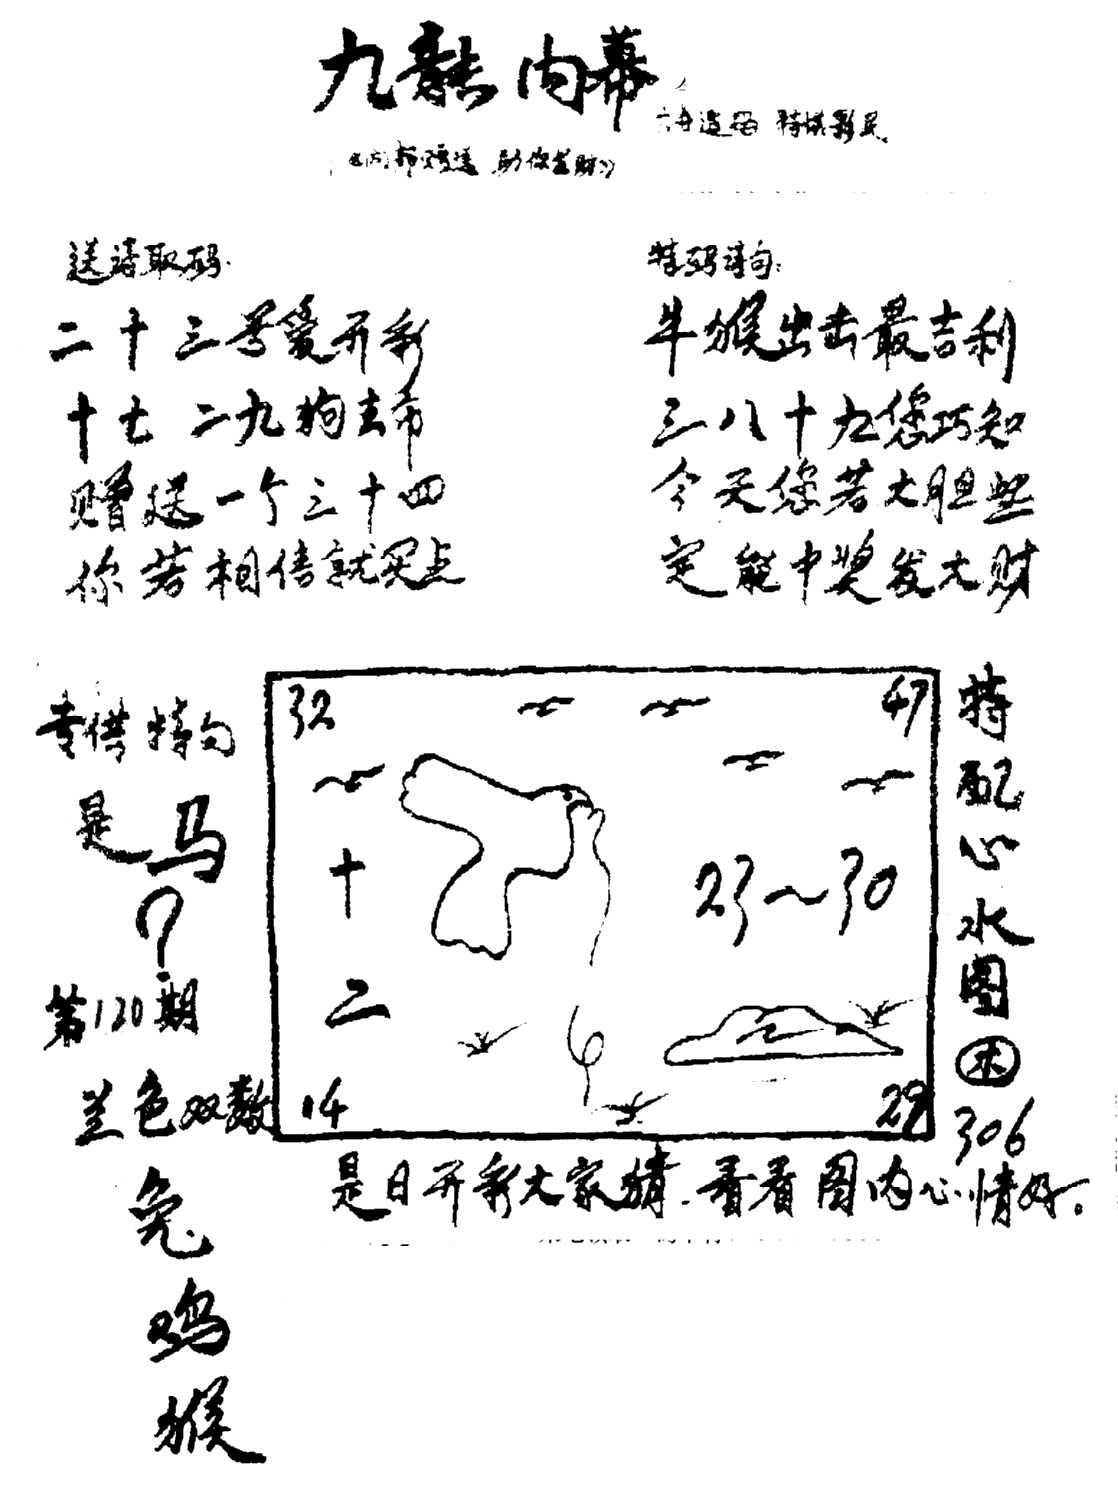 九龍内幕
特供彩民
《内部赠送 助你发财》
送诗取码:
二十三号爱开彩
十七二九狗去市
赠送一个三十四
你若相信就买点
特码诗句:
牛猴出击最吉利
三八十九您巧知
今天您若大胆些
定能中奖发大财
专供特句
是马?
第120期
兰色双数
兔
鸡
猴
32
47
十二
23~30
14
29
特配心水图
306
是日开彩大家猜.看看图内心情好。